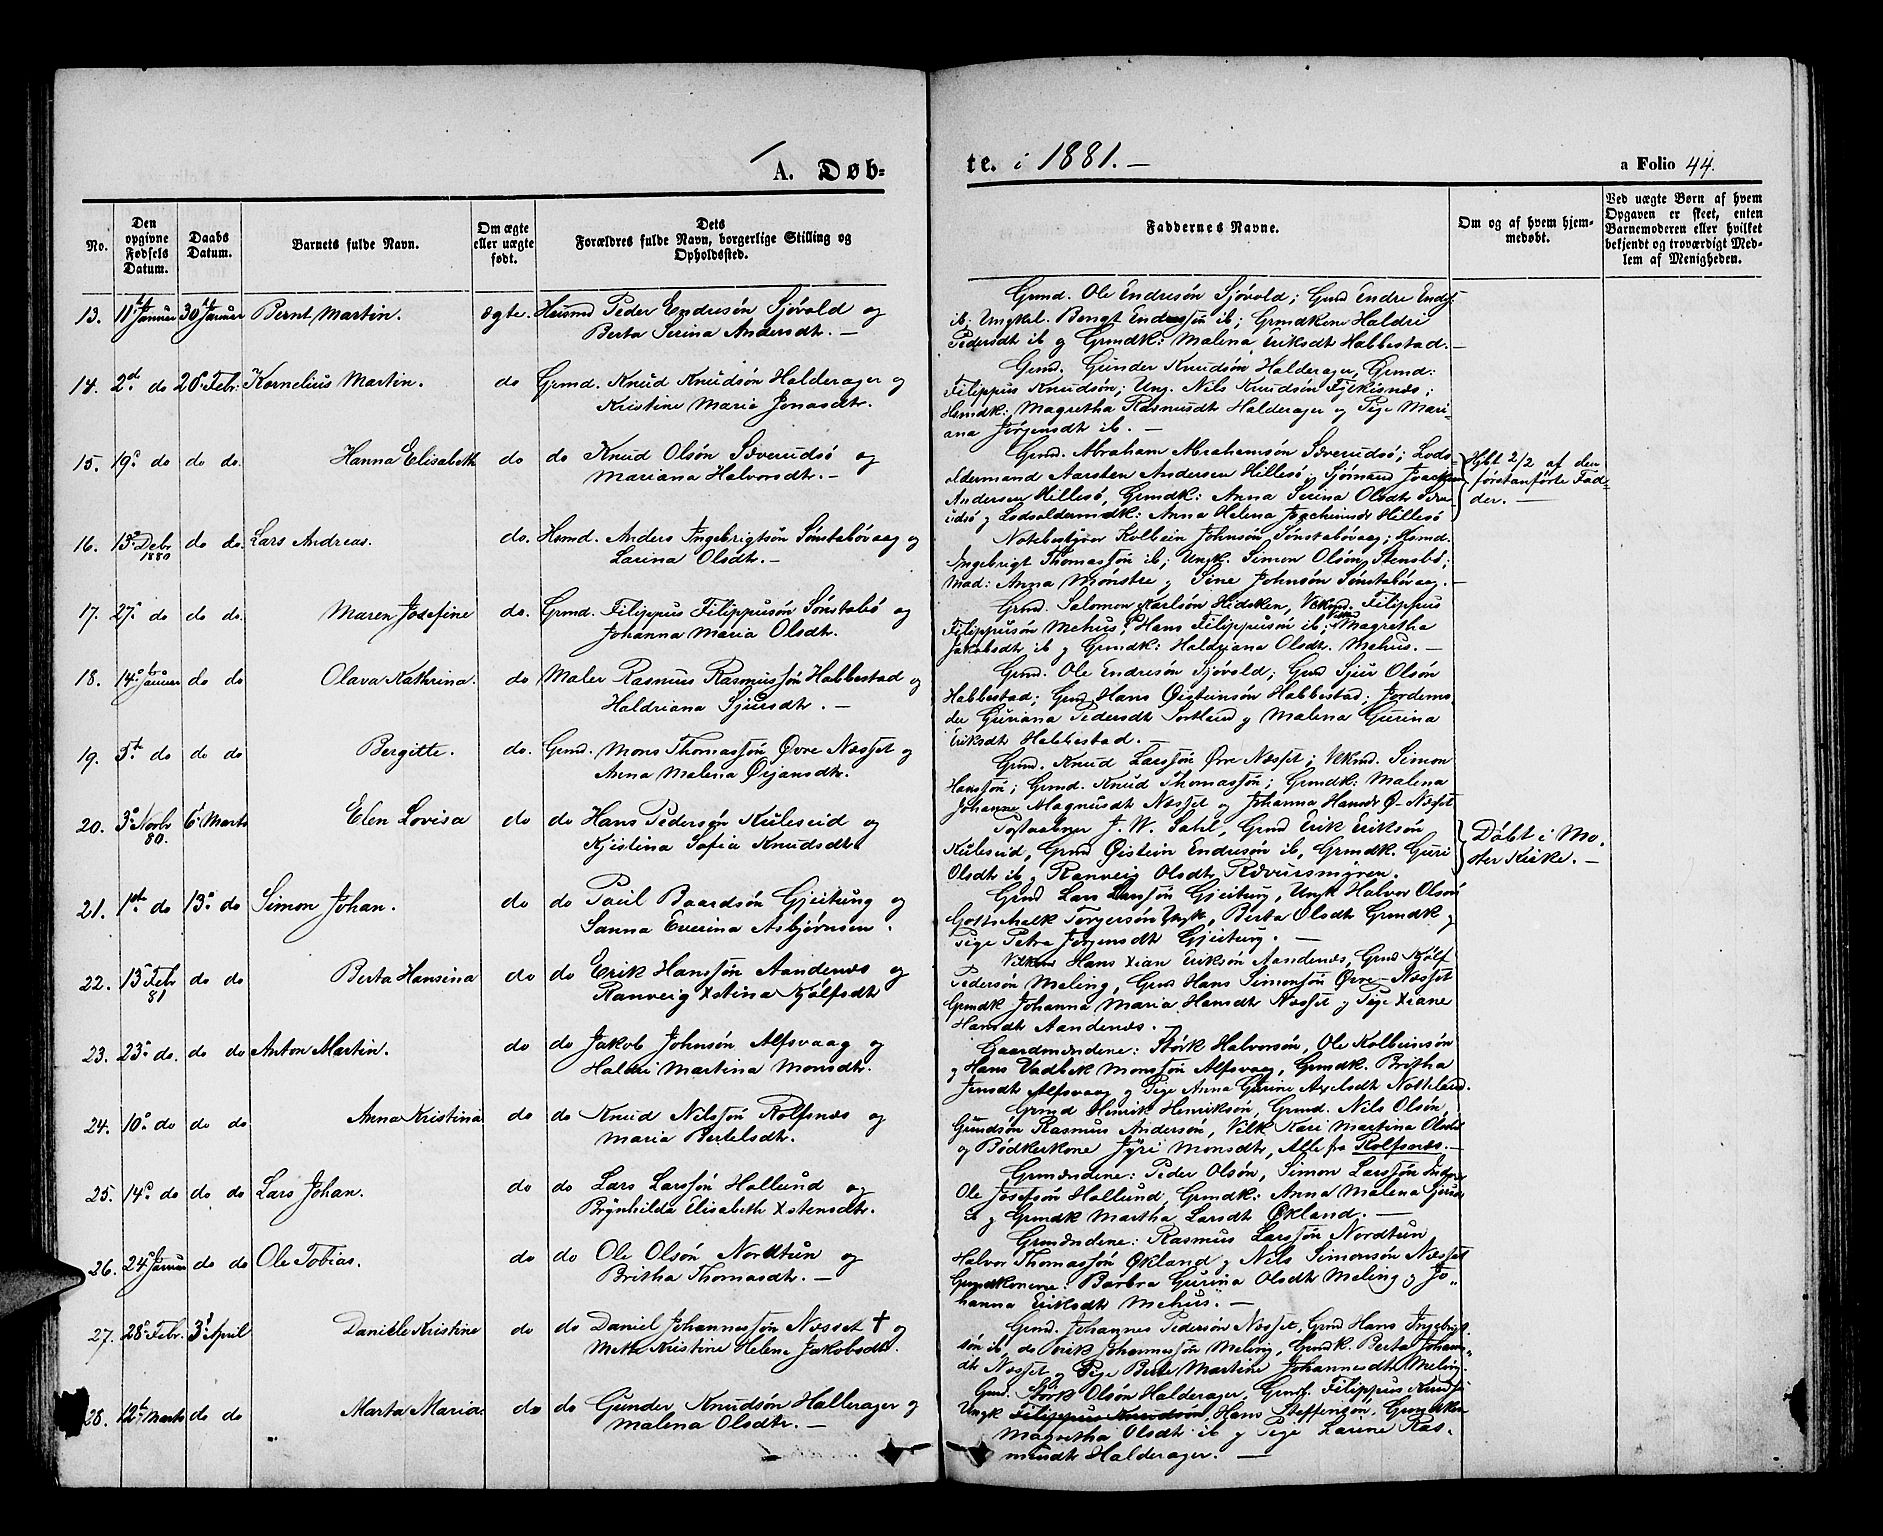 A. Døb-
te. i 1881. —
a Folio 44.
No.
Den opgivne Fødsels Datum.
Daabs Datum.
Barnets fulde Navn.
Om ægte eller uægte født.
Dets
Forældres fulde Navn, borgerlige Stilling og
Opholdssted.
Faddernes Navne.
Om og af hvem hjem-
medøbt.
Ved uægte Børn af hvem
Opgaven er skeet, enten
Barnemoderen eller hvilket
bekjendt og troværdigt Med-
lem af Menigheden.
13. 11te Januar 30 Januar Bernt Martin. ægte. Husmd Peder Endresøn Sjøvold og
Berta Serina Andersdtr. —
Grmd. Ole Endresøn Sjøvold; Grmd Endre Ends
ib; Ungkl. Bengt Endressøn ib; Grmdkone Haldri
Pedersdt ib og Grmdk: Malena Eriksdt Habbestad. —
14. 2d do 20 Febr. Kornelius Martin. do Grmd. Knud Knudsøn Halderager og
Kristine Maria Jonasdtr.
Grmd. Gunder Knudsøn Halderager, Grmd:
Filippus Knudsøn; Ung. Nils Knudsøn
Hsmdk: Magretha Rasmusdt Halderager og Pige Mari-
ana Jørgensdt ib. —
15. 19. do do do. Hanna Elisabeth do do Knud Olsøn Sæverudsø og
Mariana Halvorsdt. —
Grmd. Abraham Abrahamsøn Sæverudsø; Lods-
oldermand Aarsten Andersen Hillesø, Sjømand Joachim
Andersen Hillesø, Grmdk: Anna Serina Olsdt Sæve-
rudsø og Lodsoldermdk: Anna Helena Jocheimsdt Hillesø
Hjbt 2/2 af den
førstanførte Fad-
der. —
16. 13 Debr 1880 do do. Lars Andreas. do. Hsmd. Anders Ingebrigtsøn Sønstabøvaag og
Larina Olsdt. —
Notebestyrer Kolbein Johnsøn Sønstabøvaag; Hsmd.
Ingebrigt Thomassøn ib; Ungk. Simon Olsøn Stensbø;
Mad: Anna Mønstre og Sine Johnsøn Sønstabøvaag. —
17. 27. do do do. Maren Josefine do. Grmd. Filippus Filippusøn Sønstabø og
Johanna Maria Olsdt.
Grmd. Salomon Karlsøn Hidsken, Vikmd. Filippus
Filippusøn Mehus, Hans Filippusøn ib; Magretha
Jakobsdt ib og Grmdk: Haldriana Olsdt. Mehus. —
18. 14. Januar do do Olava Kathrina. do Maler Rasmus Rasmussøn Habbestad og
Haldriana Sjursdt. —
Grmd. Ole Endresøn Sjøvold; Grmd Sjur Olsøn
Habbestad; Grmd Hans Øisteinsøn Habbestad; Jordemo-
der Guriana Pedersdt Sortland og Malena Gurina
Eriksdt Habbestad. —
19. 5te do do do Bergitte. do. Grmd. Mons Thomassøn Øvre Næsset og
Anna Malena Ørjansdt.
Grmd. Knud Larssøn Øvre Næsset; Vikmd. Simon
Hanssøn; Grmd. Knud Thomassøn; Grmdk: Malena
Johanne Magnusdt Næsset og Johanna Hansdt Ø. Næsset
20. 3. Novbr 80. 6 Marts Elen Lovisa do do Hans Pedersøn Kuleseid og
Kjistina Sofia Knudsdt.
Postaabner J. W. Sahl, Grmd Erik Eriksøn
Kuleseid, Grmd Øistein Endresøn ib, Grmdk. Guri
Olsdt ib og Ranveig Olsdt
Døbt i Mo-
ster Kirke. —
21. 1ste do 13. do Simon Johan. do do Paul Baardsøn Gjeitung og
Sanna Everina Asbjørnsen.
Grmd Lars Larssøn Gjeitung, Ungk Halvor Olsøn
Gottschalk Torgersøn Ungk, Berta Olsdt Grmdk og
Pige Petra Jørgensdt Gjeitung. —
22. 13 Febr 81 do do Berta Hansina do do Erik Hanssøn Aandenæs og
Ranveig Xstina Kjølfsdt
Vikmd Hans Xian Eriksøn Aandenæs, Grmd Kjølf
Pedersøn Meling, Grmd Hans Simonsøn Øvre-Næsset
Grmdk Johanna Maria Hansdt Næsset og Pige Xiane
Hansdt Aandenæs. —
23. 23. do. do do Anton Martin. do do Jakob Johnsøn Alfsvaag og
Haldri Martina Monsdt.
Gaardmændene: Størk Halvorsøn, Ole Kolbeinsøn
og Hans Vadbek Monssøn Alfsvaag, Grmdk. Britha
Jensdt Alfsvaag og Pige Anna Gurine Axelsdt Notteland.
24. 10. do do do Anna Kristina do do Knud Nilssøn Rolfsnæs og
Maria Bertelsdt.
Grmd Henrik Henriksøn, Grmd. Nils Olsøn,
Rasmus Andersøn, Vilk Kari Martina Olsdt
og Bødkerkone Jyri Monsdt, Alle fra Rolfsnæs. —
25. 14. do do do Lars Johan. do do Lars Larssøn Hollund og
Brynhilda Elisabeth Xstensdt.
Grmændene: Peder Olsøn, Simon Larssøn
Ole Josefsøn Hollund, Grmdk: Anna Malena
ib og Grmdk Martha Larsdt Økland. —
26. 24. Januar do do Ole Tobias. do do Ole Olsøn Nordtun og
Britha Thomasdt. —
Grmændene: Rasmus Larssøn Nordtun
Halvor Thomassøn Økland og Nils Simonsøn Næsset
Grmdkonerne: Barbra Gurina Olsdt Meling og Jo-
hanna Eriksdt Mehus. —
27. 28. Febr. 3 April Daniele Kristine do do Daniel Johannessøn Næsset † og
Mette Kristine Helene Jakobsdt.
Grmd. Johannes Pedersøn Næsset, Grmd Hans Ingebrigt-
søn ib, do Erik Johannessøn Meling, Grmdk. Berta Johann-
dt Næsset og Pige Berte Martine Johannesdt Meling.
28. 12te Marts do do Marta Maria. do do Gunder Knudsøn Hallerager og
Malena Olsdt. —
Grmd. Størk Olsøn Halderager, Grmd. Filippus Knuds
Ungk Filippus Knudsøn, Hans Steffensøn, Grmdkn
Magretha Olsdt ib og Pige Larine Ras-
musdt Halderager. —